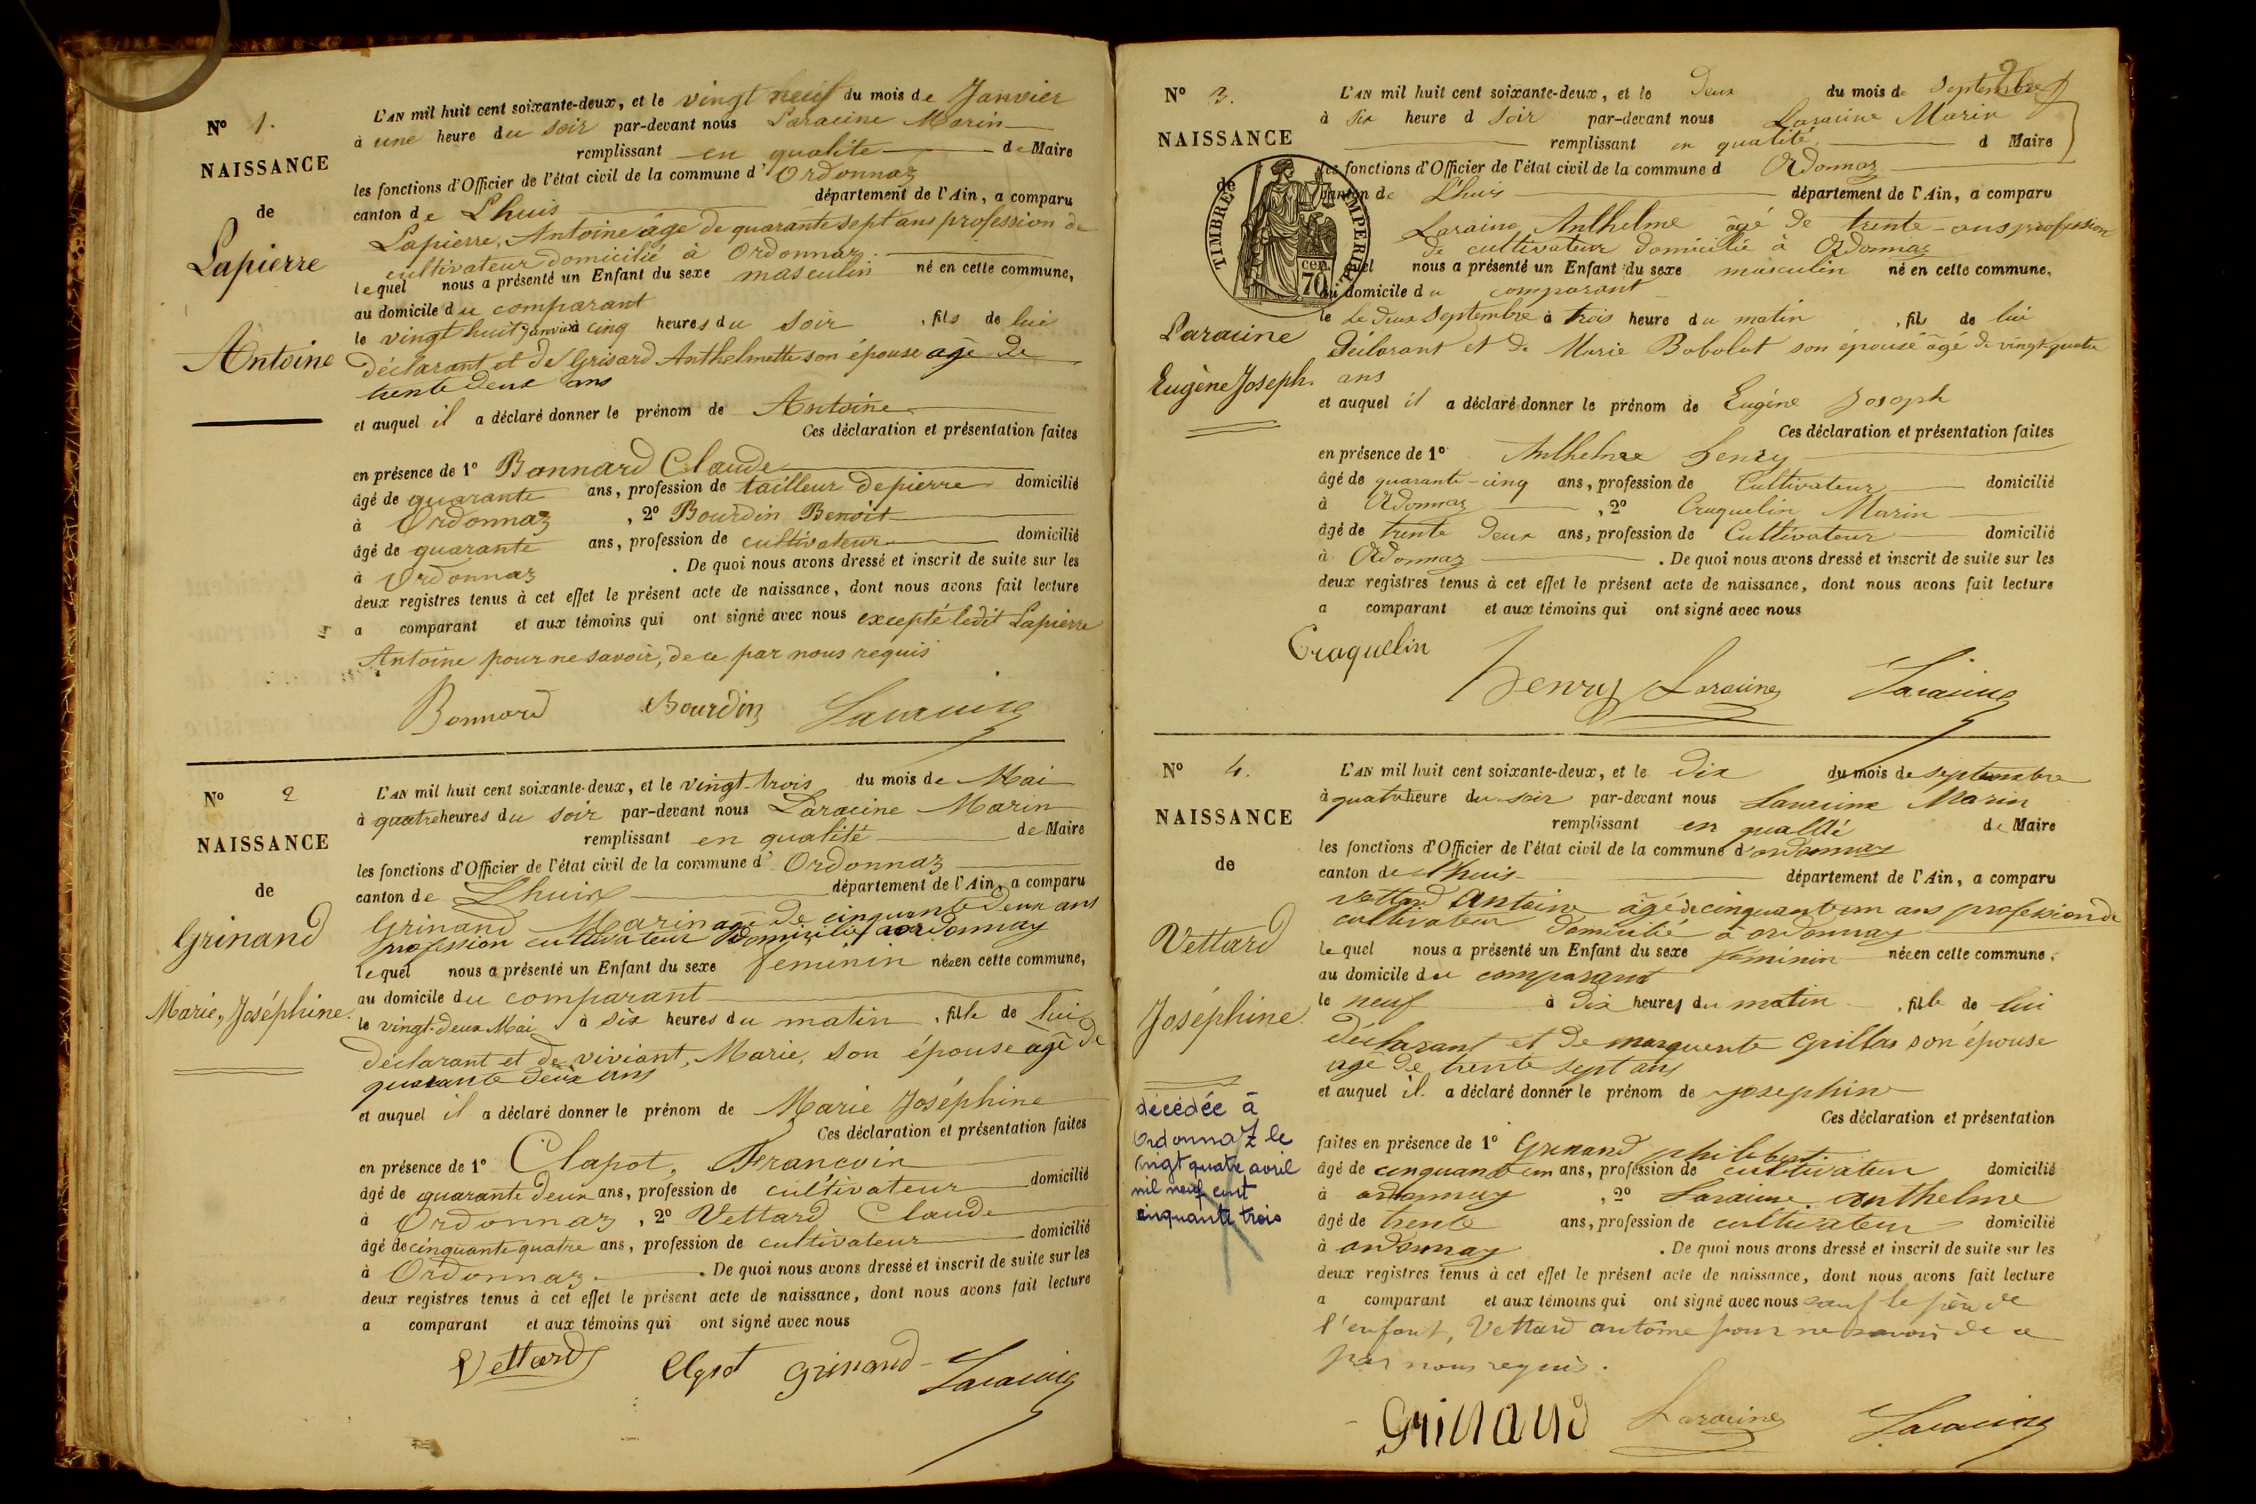 N° 1.
NAISSANCE
de
Lapierre
Antoine
L'AN mil huit cent soixante-deux, et le vingt neuf du mois de Janvier
à une heure du soir par-devant nous Laracine Marin
remplissant en qualité de Maire
les fonctions d'Officier de l'état civil de la commune d'Ordonnaz
canton de Lhuis département de l'Ain, a comparu
Lapierre, Antoine âge de quarante sept ans profession de
cultivateur domicilié à Ordonnaz
lequel nous a présenté un Enfant du sexe masculin né en cette commune,
au domicile du comparant
le vingt huit janvier à cinq heures du soir, fils de lui
déclarant et de Grisard Anthelmette son épouse age de
trente deux ans
et auquel il a déclaré donner le prénom de Antoine
Ces déclaration et présentation faites
en présence de 1° Bonnard Claude
âgé de quarante ans, profession de tailleur de pierre domicilié
à Ordonnaz, 2° Bourdin Benoit
âgé de quarante ans, profession de cultivateur domicilié
à Ordonnaz. De quoi nous avons dressé et inscrit de suite sur les
deux registres tenus à cet effet le présent acte de naissance, dont nous avons fait lecture
a comparant et aux témoins qui ont signé avec nous excepté ledit Lapierre
Antoine pour ne savoir, de ce par nous requis
Bonnard Bourdin Laracine
N° 2
NAISSANCE
de
Grinand
Marie, Joséphine.
L'AN mil huit cent soixante-deux, et le vingt-trois du mois de Mai
à quatre heures du soir par-devant nous Laracine Marin
remplissant en qualité de Maire
les fonctions d'Officier de l'état civil de la commune d'Ordonnaz
canton de Lhuis département de l'Ain, a comparu
Grinand Marin agé de cinquante deux ans
profession cultivateur domicilié a ordonnaz
lequel nous a présenté un Enfant du sexe feminin née en cette commune,
au domicile du comparant
le vingt-deux Mai à six heures du matin, fille de lui
déclarant et de viviant, Marie, son épouse agé de
quarante deux ans
et auquel il a déclaré donner le prénom de Marie Joséphine
Ces déclaration et présentation faites
en présence de 1° Clapot, Francoin
âgé de quarante deux ans, profession de cultivateur domicilié
à Ordonnaz, 2° Vettard Claude
âgé de cinquante quatre ans, profession de cultivateur domicilié
à Ordonnaz. De quoi nous avons dressé et inscrit de suite sur les
deux registres tenus à cet effet le présent acte de naissance, dont nous avons fait lecture
a comparant et aux témoins qui ont signé avec nous
Vettard Grinand Laracine
2
N° 3.
NAISSANCE
de
TIMBRE IMPERIAL
70 cen.
Laracine
Eugène Joseph.
L'AN mil huit cent soixante-deux, et le deux du mois de septembre
à six heure d soir par-devant nous Laracine Marin
remplissant en qualité d Maire
les fonctions d'Officier de l'état civil de la commune d Ordonnaz
canton de Lhuis département de l'Ain, a comparu
Laracine Anthelme âgé de trente ans profession
de cultivateur domicilié à Ordonnaz
quel nous a présenté un Enfant du sexe masculin né en cette commune,
au domicile du comparant
le le deux septembre à trois heure du matin, fil de lui
Déclarant et de Marie Bobolat son épouse âgé de vingt quatre
ans
et auquel il a déclaré donner le prénom de Eugène Joseph
Ces déclaration et présentation faites
en présence de 1° Anthelme henry
âgé de quarante-cinq ans, profession de Cultivateur domicilié
à Ordonnaz, 2° Craquelin Marin
âgé de trente deux ans, profession de Cultivateur domicilié
à Ordonnaz. De quoi nous avons dressé et inscrit de suite sur les
deux registres tenus à cet effet le présent acte de naissance, dont nous avons fait lecture
a comparant et aux témoins qui ont signé avec nous
Craquelin
henry Laracine Laracine
N° 4.
NAISSANCE
de
Vettard
Joséphine.
décédée à
Ordonnaz le
vingt quatre avril
mil neuf cent
cinquante trois
L'AN mil huit cent soixante-deux, et le dix du mois de septembre
à quatre heure du soir par-devant nous Laracine Marin
remplissant en qualité de Maire
les fonctions d'Officier de l'état civil de la commune d'ordonnaz
canton de Lhuis département de l'Ain, a comparu
Vettard Antoine âgé de cinquante un ans profession de
cultivateur domicilié à ordonnaz
lequel nous a présenté un Enfant du sexe féminin née en cette commune,
au domicile du comparant
le neuf à dix heures du matin, fille de lui
déclarant et de marguerite Grillas son épouse
agé de trente sept ans
et auquel il a déclaré donner le prénom de josephine
Ces déclaration et présentation
faites en présence de 1° Grinand philibert
âgé de cinquante un ans, profession de cultivateur domicilié
à ordonnaz, 2° Laracine anthelme
âgé de trente ans, profession de cultivateur domicilié
à ordonnaz. De quoi nous avons dressé et inscrit de suite sur les
deux registres tenus à cet effet le présent acte de naissance, dont nous avons fait lecture
a comparant et aux témoins qui ont signé avec nous sauf le père de
l'enfant, Vettard antoine pour ne savoir de ce
par nous requis.
Grinand Laracine Laracine